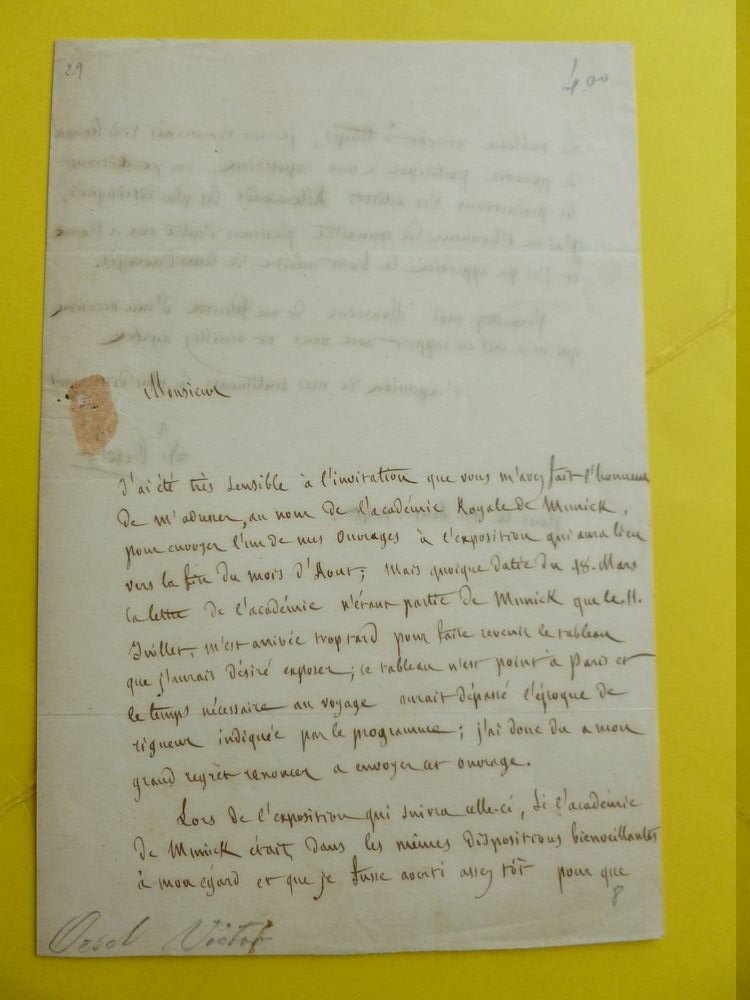 29
4.00
Monsieur
J'ai été très sensible à l'invitation que vous m'avez fait l'honneur
De m'adresser, au nom de l'académie Royale de Munick,
pour envoyer l'un de mes ouvrages à l'exposition qui aura lieu
vers la fin du mois d'Aout; mais quoique datée du 18. Mars
la lettre de l'académie n'étant partie de Munick que le 11.
Juillet, m'est arrivée trop tard pour faire revenir le tableau
que j'aurais désiré exposer; ce tableau n'est point à Paris et
le temps nécessaire au voyage aurait dépassé l'époque de
rigueur indiquée par le programme; j'ai donc du a mon
grand regret renoncer a envoyer cet ouvrage.
Lors de l'exposition qui suivra celle-ci, Si l'académie
De Munick était dans les mêmes dispositions bienveillantes
à mon égard et que je fusse averti assez tôt pour que
8
Orsel Victor